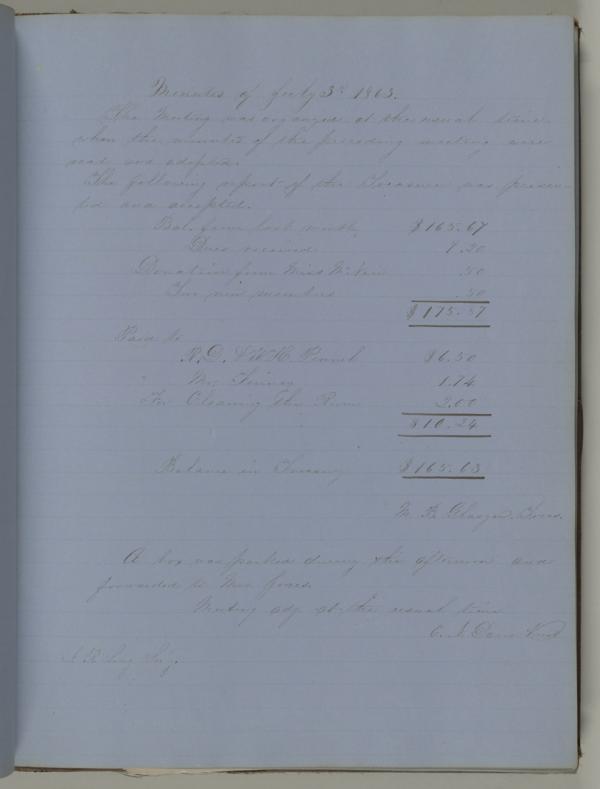 Minutes of July 3rd 1863.
The Meeting was organized at the usual time
when the minutes of the preceding meeting were
read and adopted.
The following report of the Treasurer was presen-
ted and accepted.
Bal. from last month $165.67
Dues received 9.20
Donation from Miss .50
Two new members .50
$175.87
Paid to
R.D. & W.H. $6.50
" Mr. 1.74
For Cleaning the Room 2.00
$10.24
Balance in Treasury $165.63
M. B. Glasgow, Treas.
A box was packed during the afternoon and
forwarded to Mrs.
Meeting adj. at the usual time